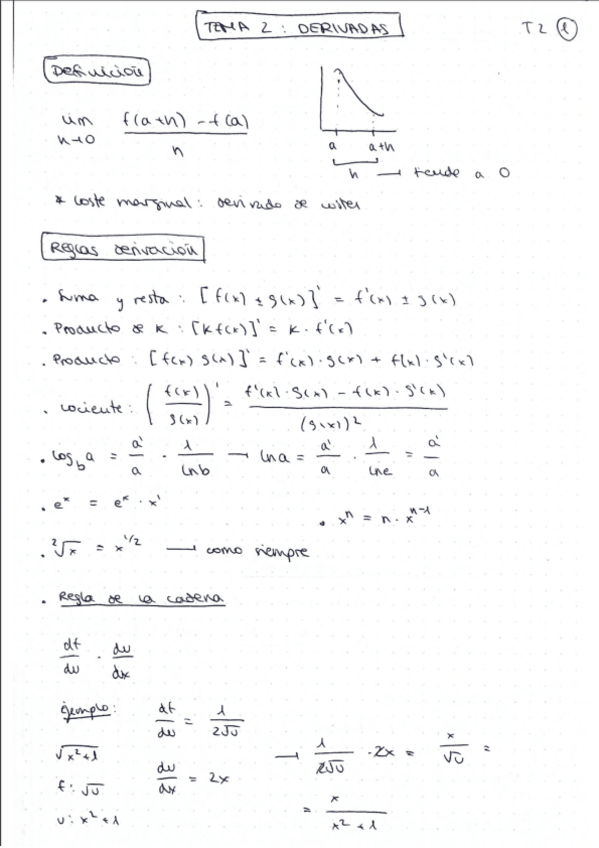 TEMA 2 : DERIVADAS
T2 1
Definición
lim h→0 f(a+h) - f(a) / h
a a+h
h → tiende a 0
* Coste marginal: derivada de costes
Reglas derivación
. Suma y resta : [f(x) ± g(x)]' = f'(x) ± g(x)
. Producto de K : [K f(x)]' = K · f'(x)
. Producto : [f(x) g(x)]' = f'(x) · g(x) + f(x) · g'(x)
. cociente : (f(x) / g(x))' = f'(x) · g(x) - f(x) · g'(x) / (g(x))²
. log_b a = a'/a · 1/ln b → ln a = a'/a · 1/ln e = a'/a
. eˣ = eˣ · x'
. xⁿ = n · xⁿ⁻¹
. ²√x = x^1/2 → como siempre
. Regla de la cadena
df/du · du/dx
Ejemplo:
√x²+1
f: √u
u: x²+1
df/du = 1/2√u
du/dx = 2x
→ 1/2√u · 2x = x/√u =
= x / x²+1